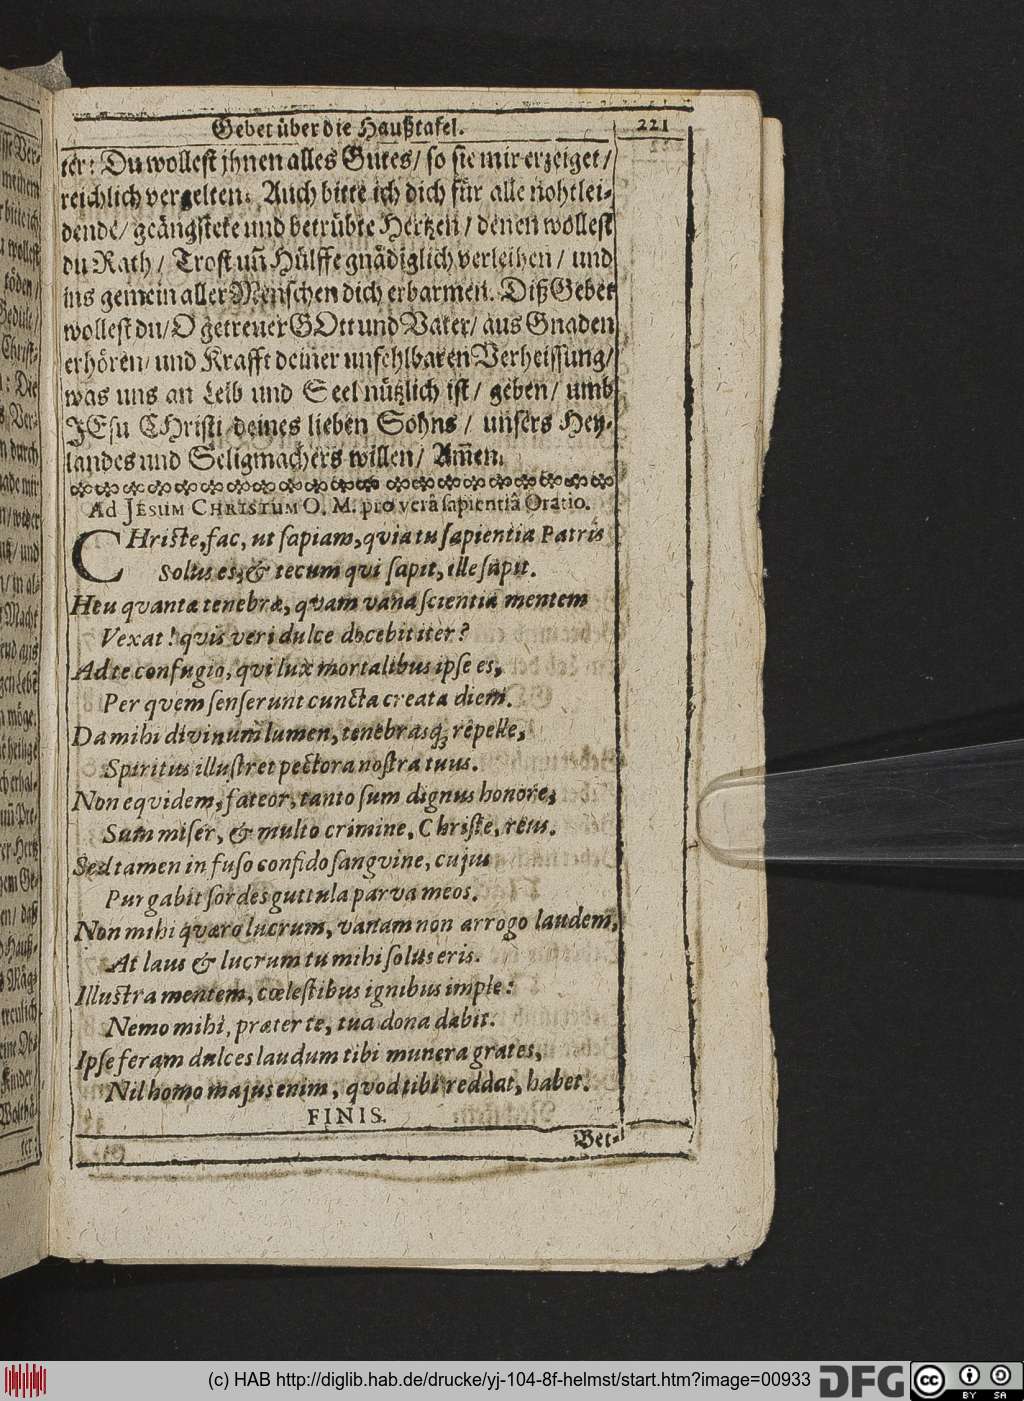 Gebet über die Haußtafel. 221
ter: Du wollest jhnen alles Gutes/ so sie mir erzeiget/
reichlich vergelten. Auch bitte ich dich für alle nohtlei-
dende/ geängstete und betrübte Hertzen/ denen wollest
du Rath/ Trost uñ Hülffe gnädiglich verleihen/ und
ins gemein aller Menschen dich erbarmen. Diß Gebet
wollest du/ O getreuer GOtt und Vater/ aus Gnaden
erhören/ und Krafft deiner unfehlbaren Verheissung/
was uns an Leib und Seel nützlich ist/ geben/ umb
JEsu CHristi deines lieben Sohns/ unsers Hey-
landes und Seligmachers willen/ Am̃en.
Ad JESUM CHRISTUM O. M. pro verâ sapientiâ Oratio.
CHriste, fac, ut sapiam, qvia tu sapientia Patris
Solus es, & tecum qvi sapit, ille sapit.
Heu qvantæ tenebræ, qvam vana scientia mentem
Vexat! qvis veri dulce docebit iter?
Ad te confugio, qvi lux mortalibus ipse es,
Per qvem senserunt cuncta creata diem.
Da mihi divinum lumen, tenebrasq; repelle,
Spiritus illustret pectora nostra tuus.
Non eqvidem, fateor, tanto sum dignus honore,
Sum miser, & multo crimine, Christe, reus.
Sed tamen in fuso confido sangvine, cujus
Purgabit sordes guttula parva meos.
Non mihi qværo lucrum, vanam non arrogo laudem,
At laus & lucrum tu mihi solus eris.
Illustra mentem, cœlestibus ignibus imple:
Nemo mihi, præter te, tua dona dabit.
Ipse feram dulces laudum tibi munera grates,
Nil homo majus enim, qvod tibi reddat, habet.
FINIS.
Bet-
(c) HAB http://diglib.hab.de/drucke/yj-104-8f-helmst/start.htm?image=00933
DFG
cc BY SA